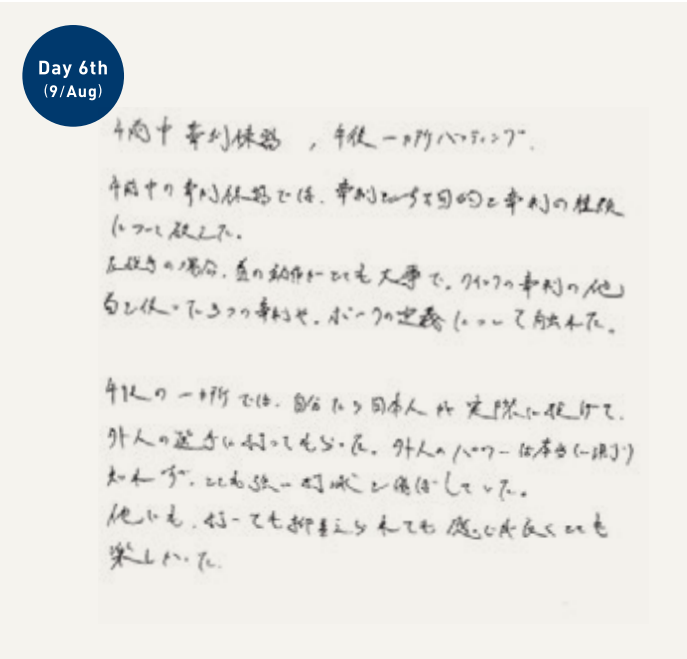 Day 6th
(9/Aug)
午前中 牽制練習 , 午後 一ヶ所バッティング.
午前中の牽制練習では、牽制をする目的と牽制の種類
について教えた。
左投手の場合、首の動作がとても大事で、クイックの牽制の他
首を使った3つの牽制や、ボークの定義について触れた。
午後の一ヶ所では、自分たち日本人が実際に投げて、
外人の選手に打ってもらった。外人のパワーは本当に
知れず、とても強い打球を していた。
他にも、打っても抑えられても感じが良くとても
楽しかった.